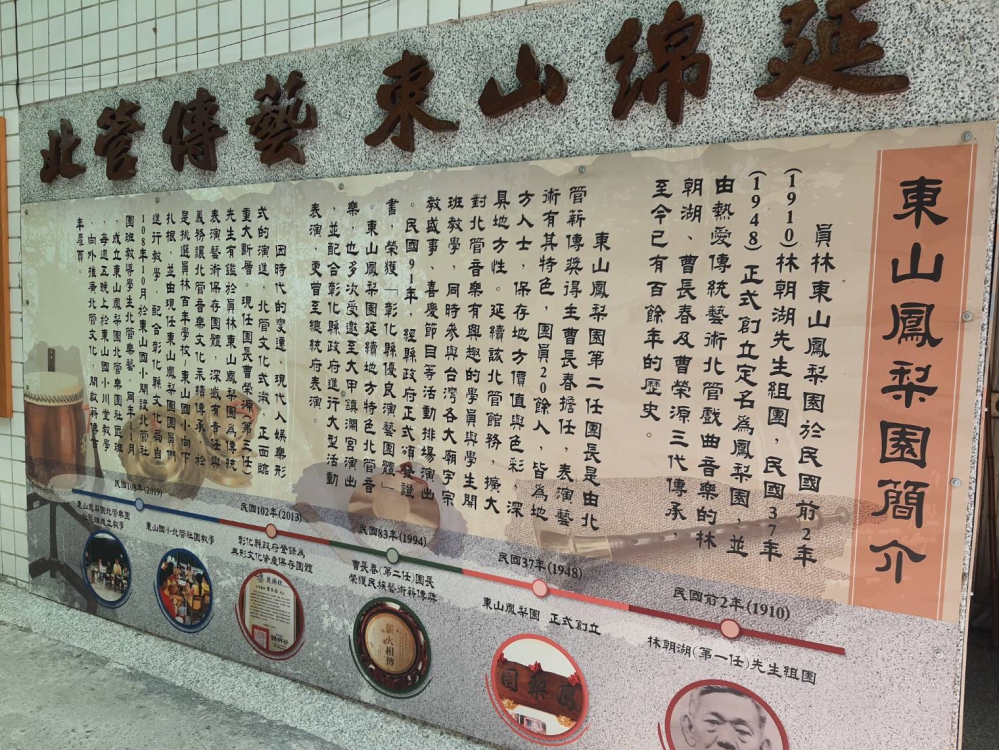 北管傳藝 東山綿延
東山鳳梨園簡介
員林東山鳳梨園於民國前2年
(1910)林朝湖先生組團，民國37年
(1948) 正式創立定名為鳳梨園，並
由熱愛傳統藝術北管戲曲音樂的林
朝湖、曹長春及曹榮源三代傳承，
至今已有百餘年的歷史。
東山鳳梨園第二任團長是由北
管薪傳獎得主曹長春擔任，表演藝
術有其特色，團員20餘人，皆為地
方人士，保存地方價值與色彩，深
具地方性。延續該北管館務，擴大
對北管音樂有興趣的學員與學生開
班教學，同時參與台灣各大廟宇宗
教盛事、喜慶節目等活動排場演出
。民國91年，經縣政府正式頒發證
書，榮獲「彰化縣優良演藝團體」
。東山鳳梨園延續地方特色北管音
樂，也多次受邀至大甲鎮瀾宮演出
，並配合彰化縣政府進行大型活動
表演，更曾至總統府表演。
因時代的變遷、現代人娛樂形
式的演進，北管文化式微，正面臨
重大斷層。現任團長曹榮源第三任
先生有鑑於員林東山鳳梨園為傳統
表演藝術保存團體，深感有責任與
義務讓北管音樂文化永續傳承，於
是挑選員林百年學校-東山國小向下
扎根，並由現任東山鳳梨園團員們
進行教學，配合彰化縣文化局自
108年10月於東山國小開設北管社
團班教導學生北管樂藝，同年11月
，成立東山鳳梨園北管樂團社區班
，每週五晚上於東山國小川堂教學
，向外推廣北管文化，開啟薪傳百
年扉頁。
民國108年(2019)
東山鳳梨園北管樂團
社區班成立教學
東山國小北管社團教學
民國102年(2013)
彰化縣政府登錄為
無形文化資產保存團體
民國83年(1994)
曹長春(第二任)團長
榮獲民族藝術薪傳獎
薪火相傳
民國37年(1948)
東山鳳梨園 正式創立
園梨鳳
民國前2年(1910)
林朝湖(第一任)先生組團